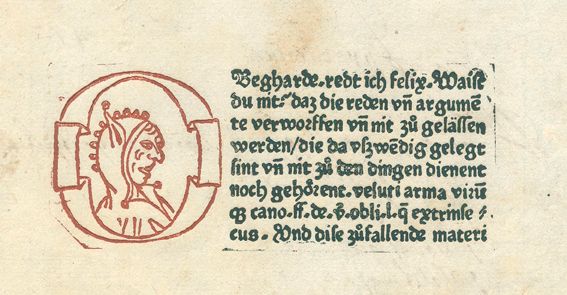 Begharde. redt ich felix. Waist
du nit. daz die reden vñ argumē
te verworffen vñ nit zů gelässen
werden/die da vszwēdig gelegt
sint vñ nit zů den dingen dienent
noch gehörent. veluti arma virūq̄
cano. ff. de. v̄. obli. l. q̄ extrinse⸗
cus. Vnd dise zůfallende materi